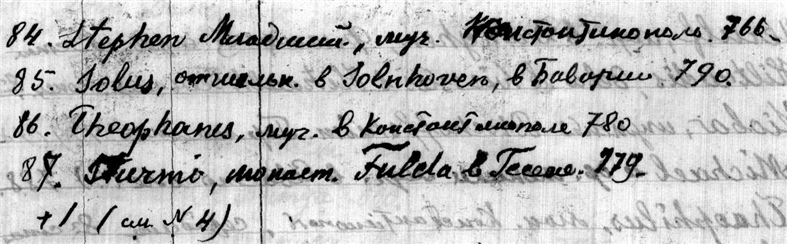 84. Stephen Младший, муч. Константинополь. 766.
85. Solus, отшельн. в Solnhoven, в Баварии. 790.
86. Theophanes, муч. в Константинополе 780
87. Sturmio, монаст. Fulda в Гессене. 779.
+1 (см. N 4)